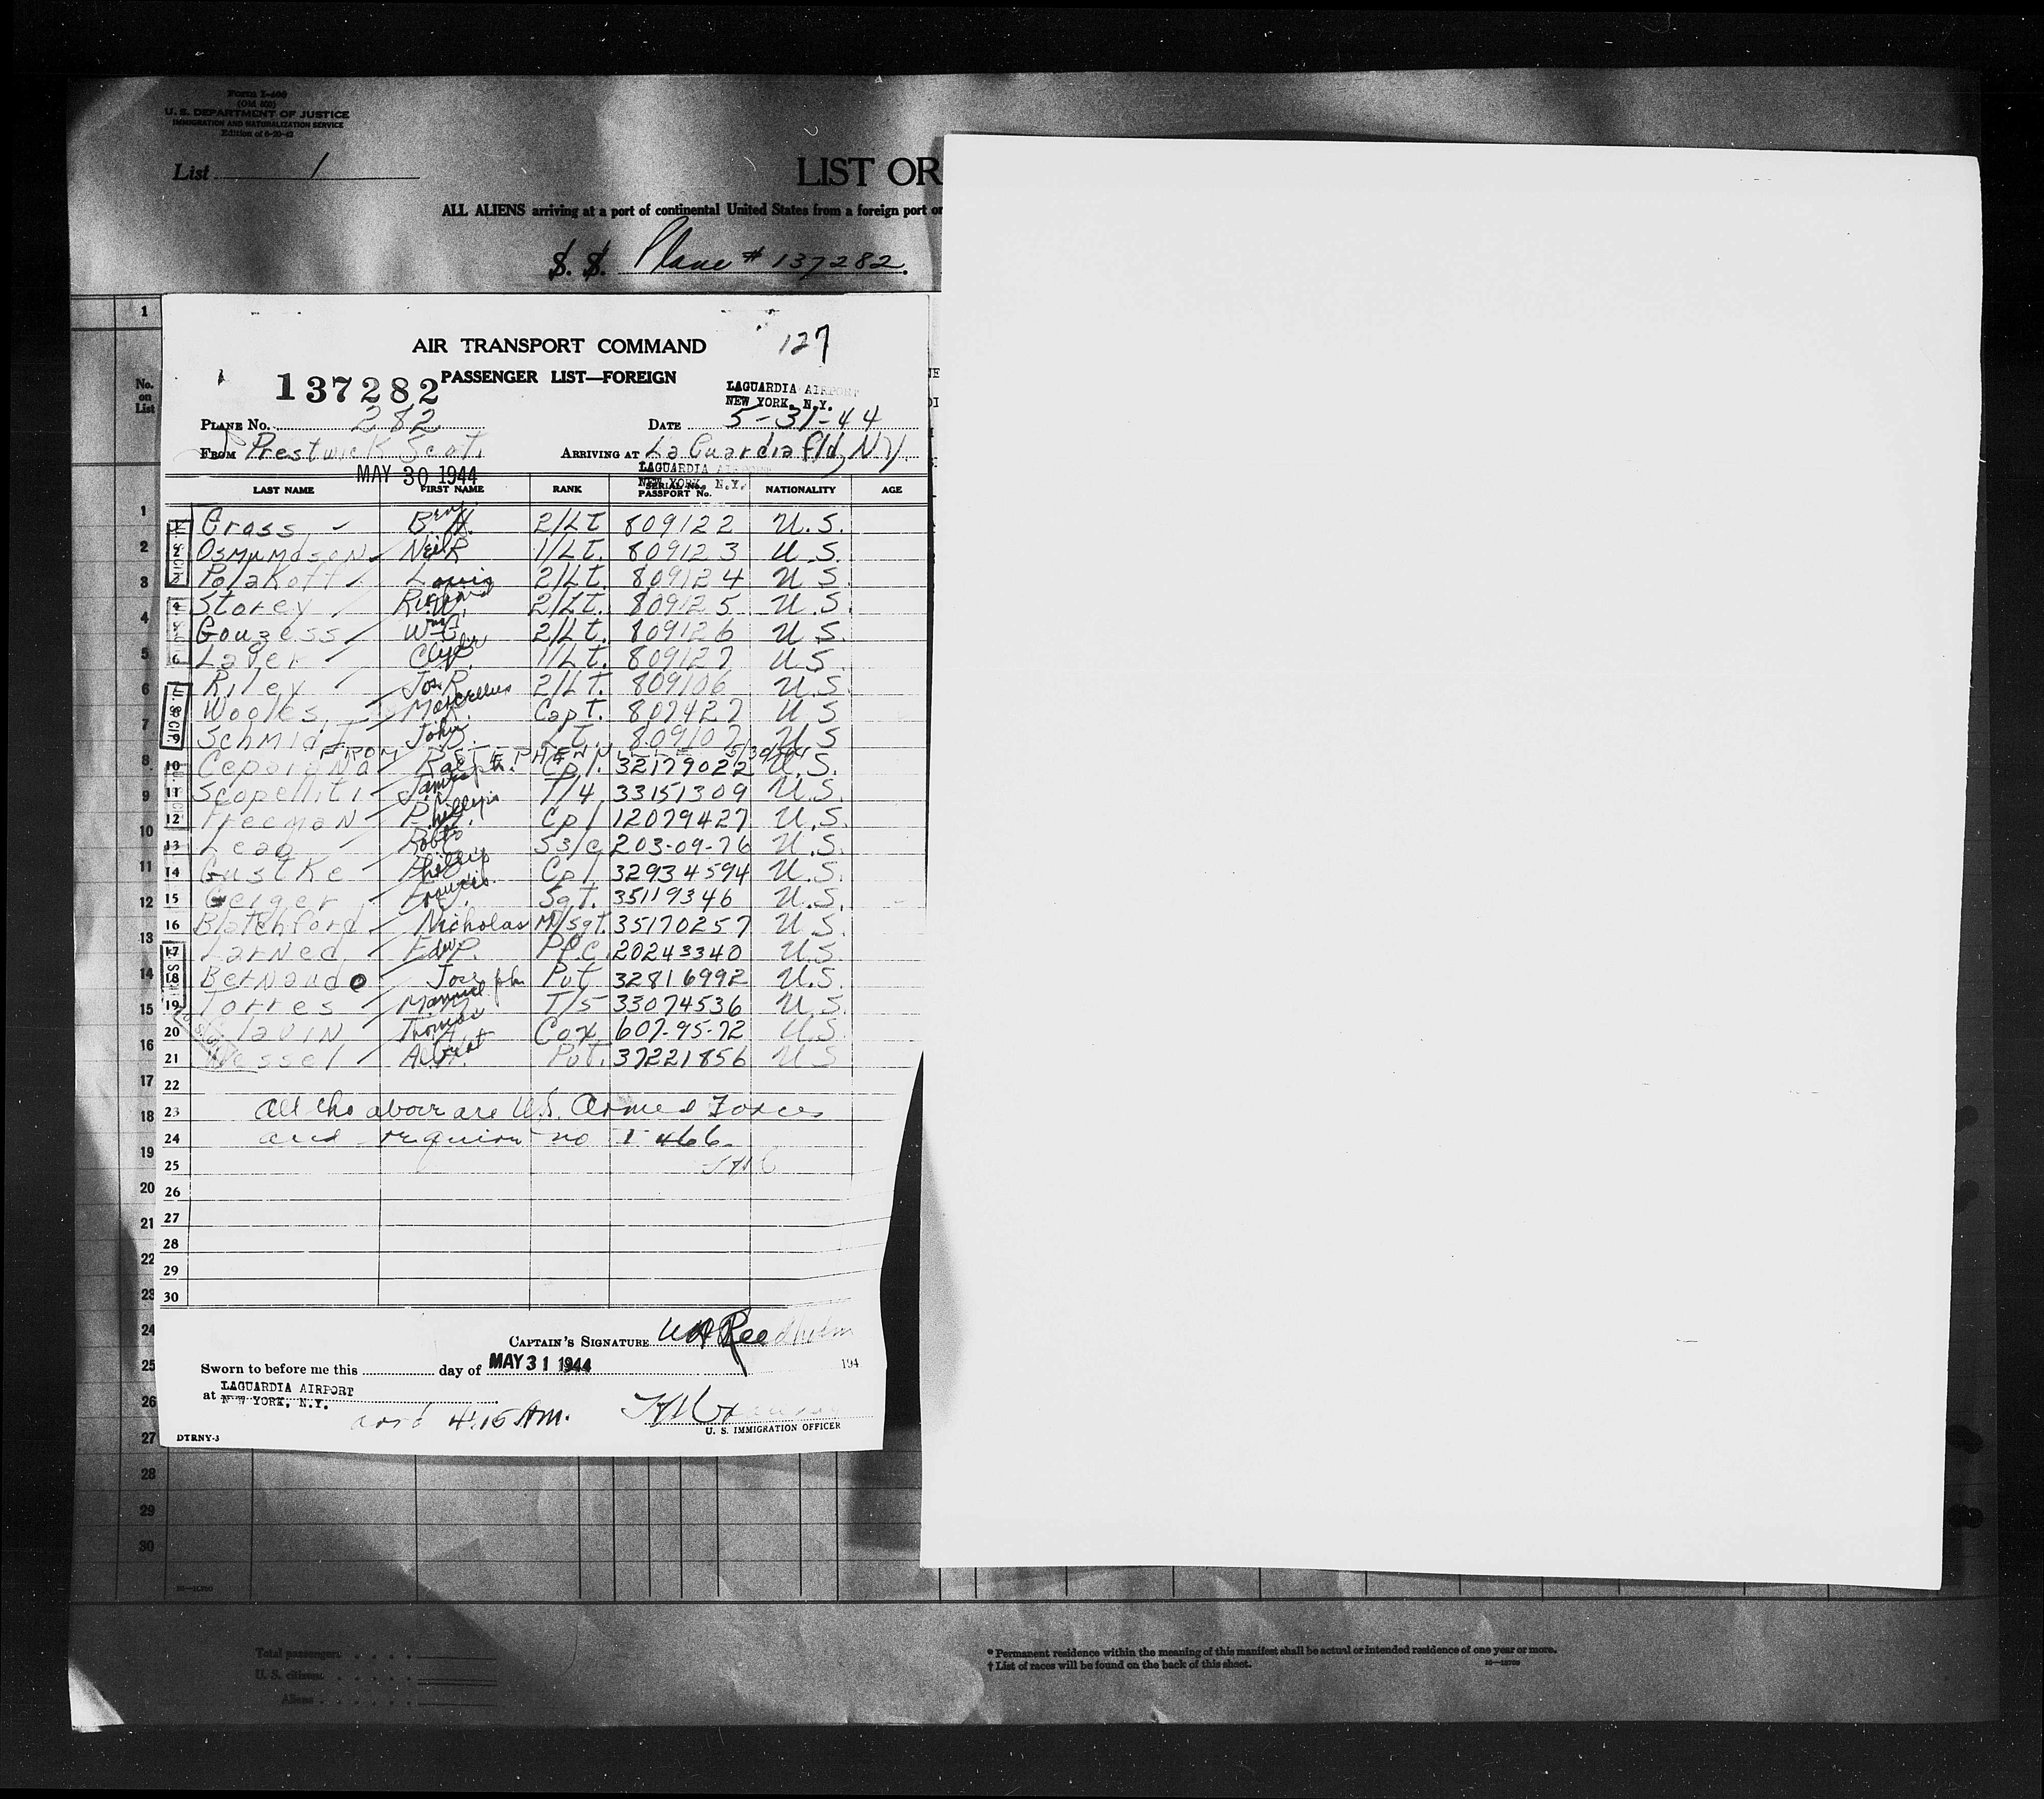 Form I-466
(Old 500)
U. S. DEPARTMENT OF JUSTICE
IMMIGRATION AND NATURALIZATION SERVICE
Edition of 6-20-42
List 1
LIST OR
ALL ALIENS arriving at a port of continental United States from a foreign port or
S. S. Plane # 137282.
No. on List
AIR TRANSPORT COMMAND 127
137282 PASSENGER LIST—FOREIGN
LAGUARDIA AIRPORT
NEW YORK, N.Y.
PLANE No. 282 DATE 5-31-44
FROM Prestwick Scot. ARRIVING AT La Guardia Fld, NY.
MAY 30 1944 LAGUARDIA AIRPORT
NEW YORK, N.Y.
LAST NAME FIRST NAME RANK SERIAL No. PASSPORT No. NATIONALITY AGE
Gross H. 2/Lt 809122 U.S.
Osmundson Neil R 1/Lt. 809123 U.S.
Polakoff Louis 2/Lt. 809124 U.S.
Storey Richard W. 2/Lt. 809125 U.S.
Gouzess Wm G. 2/Lt. 809126 U.S.
Layer Clyde 1/Lt. 809127 U.S.
Riley Jos. R. 2/Lt. 809106 U.S.
Marcellus Capt. 807427 U.S.
Schmidt John Lt. 809107 U.S.
FROM STEPHENVILLE 5/30/44
10 Ceparano Ralph Cpl. 32179022 U.S.
11 Scopelliti James T/4 33151309 U.S.
12 Freeman Phillip Cpl 12079427 U.S.
13 Robt S3/c 203-09-76 U.S.
14 Gustke Phillip Cpl 32934594 U.S.
15 Geiger Francis Sgt. 35119346 U.S.
16 Blatchford Nicholas M/Sgt. 35170257 U.S.
17 Larned Edw P. PFC. 20243340 U.S.
18 Bernardo Joseph Pvt 32816992 U.S.
19 Torres Manuel T/5 33074536 U.S.
20 Slavin Thomas Cox 607-95-72 U.S.
21 Wessel Albert Pvt. 37221856 U.S.
22
23 all the above are U.S. Armed Forces
24 and require no I 466.
25
26
27
28
29
30
CAPTAIN'S SIGNATURE
Sworn to before me this day of MAY 31 1944 194
at LAGUARDIA AIRPORT
NEW YORK, N.Y.
arrd 4:15 AM.
U. S. IMMIGRATION OFFICER
DTRNY-3
Total passengers
U. S. citizens
Aliens
* Permanent residence within the meaning of this manifest shall be actual or intended residence of one year or more.
† List of races will be found on the back of this sheet.